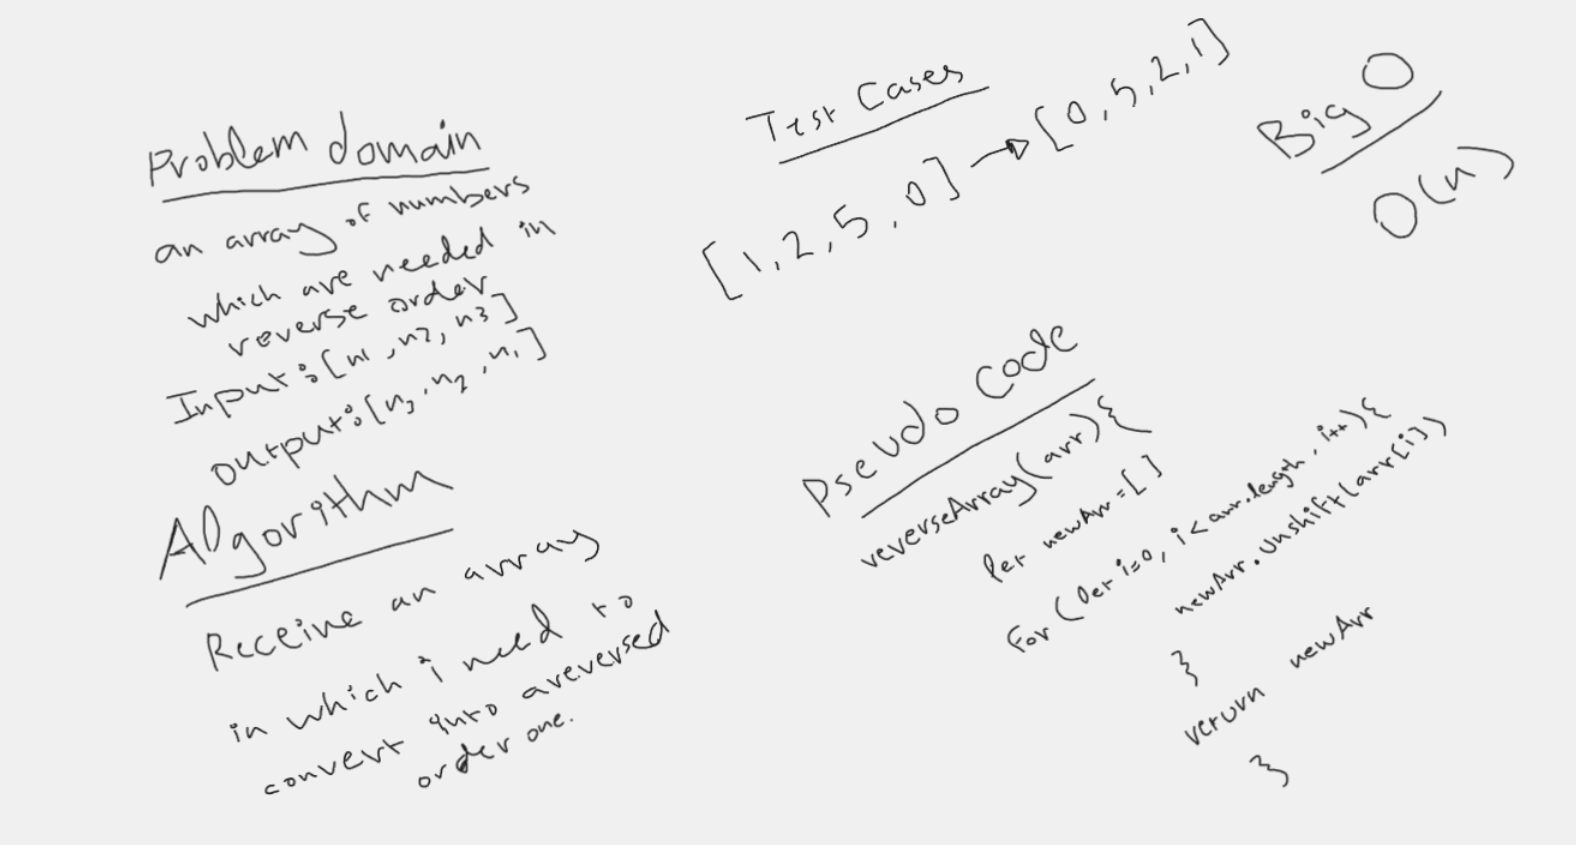 Problem domain
an array of numbers
which are needed in
reverse order
Input:[n1, n2, n3]
output:[n3, n2, n1]
Algorithm
Receive an array
in which i need to
convert into a reversed
order one.
Test Cases
[1,2,5,0] → [0,5,2,1]
Big O
O(n)
Pseudo Code
reverseArray(arr){
let newArr=[]
for (let i=0, i<arr.length, i++){
newArr.unshift(arr[i])
}
return newArr
}